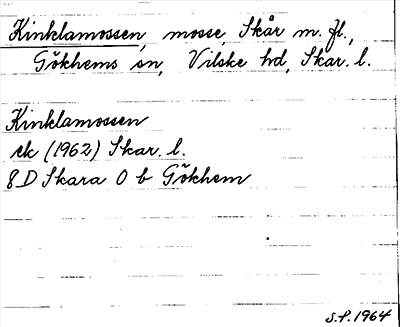 Kinklamossen, mosse, Skår m. fl.,
Gökhems sn, Vilske hd, Skar. l.
Kinklamossen
ek (1962) Skar. l.
8D Skara 0 b Gökhem
S.F. 1964